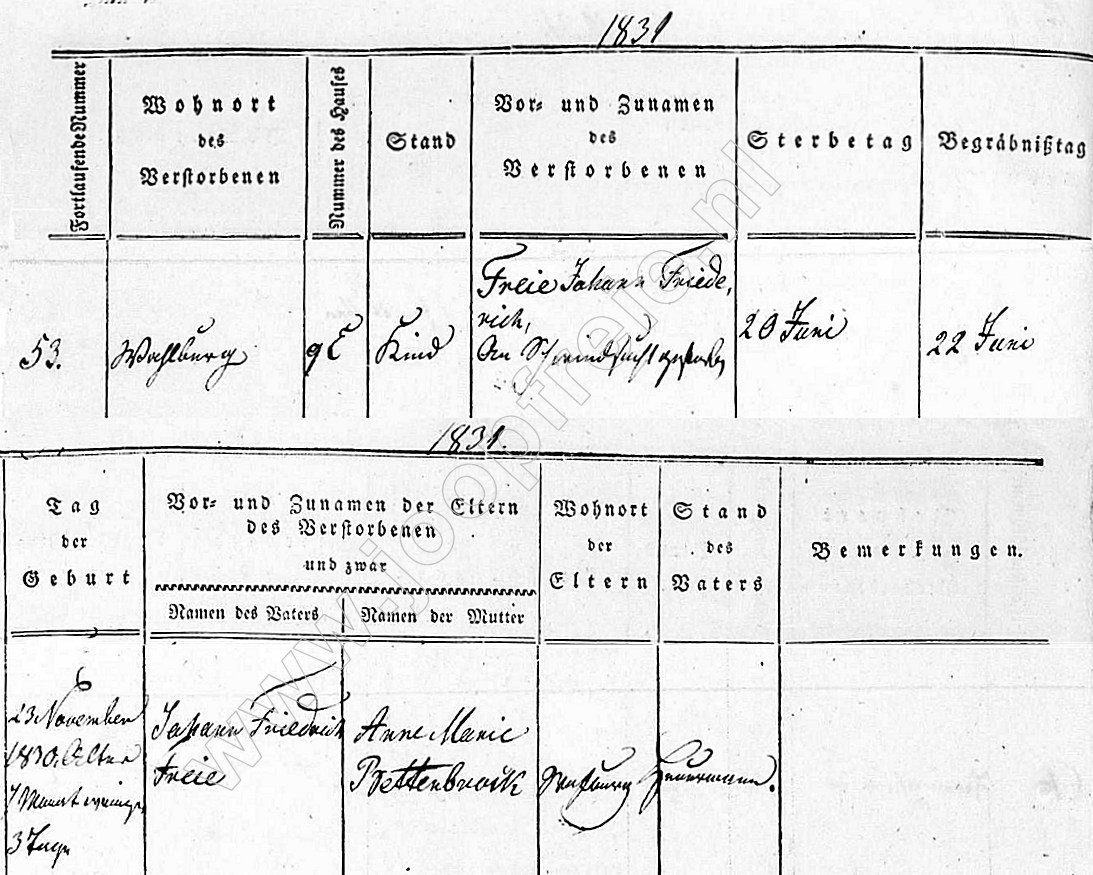 1831
Fortlaufende Nummer
Wohnort
des
Verstorbenen
Nummer des Hauses
Stand
Vor- und Zunamen
des
Verstorbenen
Sterbetag
Begräbnißtag
53.
Wahlburg
9 E
Kind
Freie Johann Friede,
rich,
An Schwindsucht gestorben
20 Juni
22 Juni
1831.
Tag
der
Geburt
Vor- und Zunamen der Eltern
des Verstorbenen
und zwar
Namen des Vaters
Namen der Mutter
Wohnort
der
Eltern
Stand
des
Vaters
Bemerkungen.
23 November
1830. Alter
7 Monat weniger
3 Tage
Johann Friedrich
Freie
Anne Marie
Bettenbrock
Heuermann.
www.joopfreie.nl